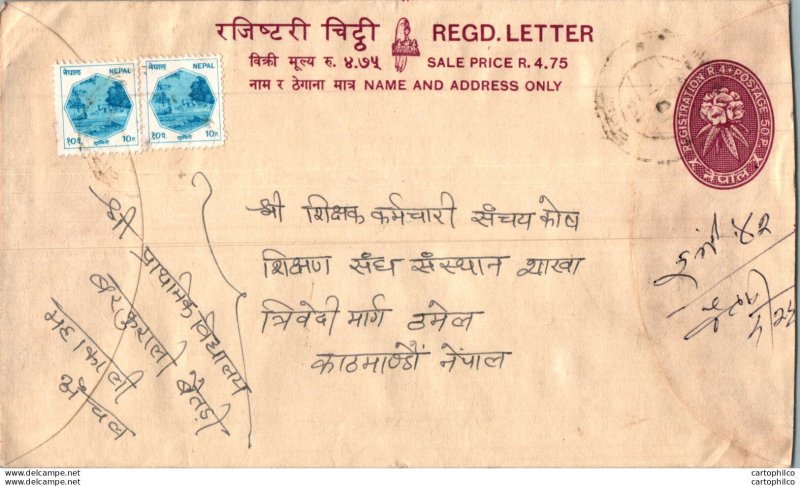 रजिष्टरी चिट्ठी REGD. LETTER
विक्री मूल्य रु. ४.७५ SALE PRICE R. 4.75
नाम र ठेगाना मात्र NAME AND ADDRESS ONLY
नेपाल NEPAL
१०पै. 10P.
नेपाल NEPAL
१०पै. 10P.
REGISTRATION R 4+POSTAGE 50P.
नेपाल
श्री शिक्षक कर्मचारी संचय कोष
शिक्षण संघ संस्थान शाखा
त्रिवेदी मार्ग ठमेल
काठमाण्डौं नेपाल
श्री प्राथमिक विद्यालय
बैतडी
महाकाली
अँचल
४२
cartophilco
cartophilco